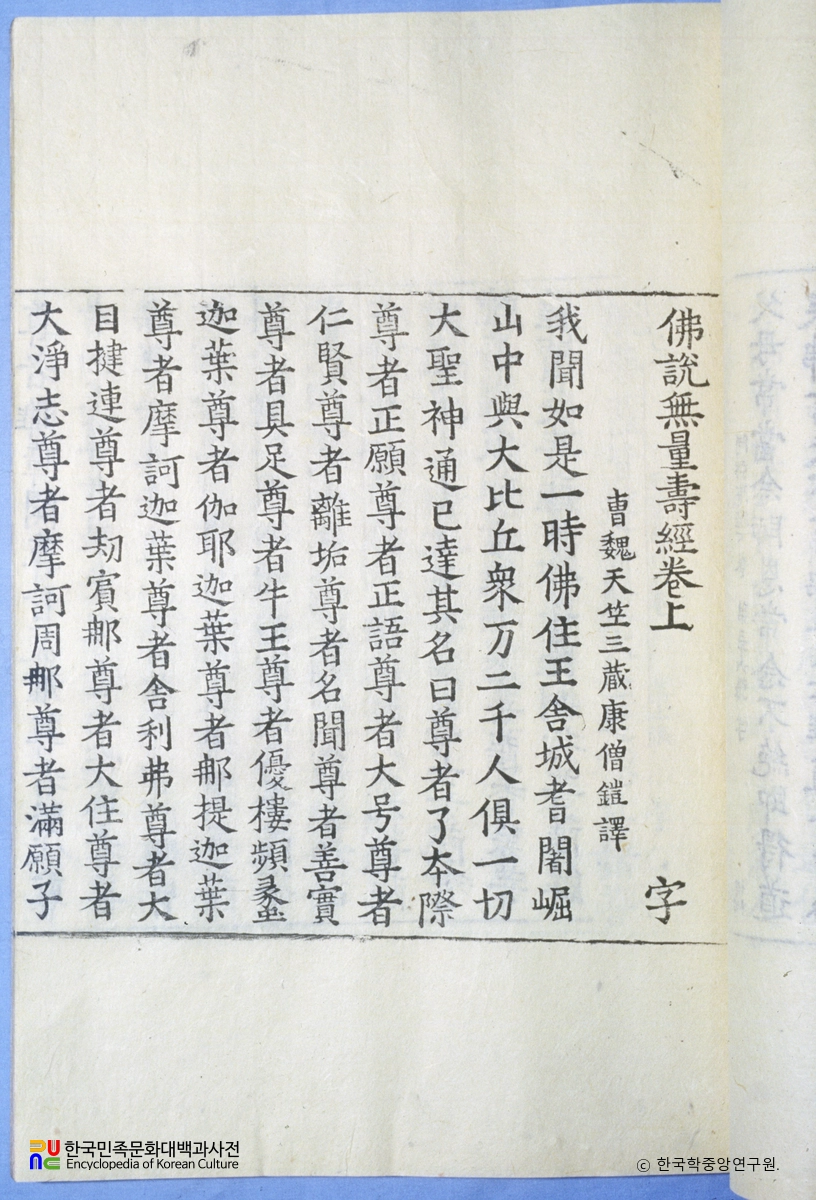 佛說無量壽經卷上 字
曹魏天竺三藏康僧鎧譯
我聞如是一時佛住王舍城耆闍崛
山中與大比丘衆万二千人俱一切
大聖神通已達其名曰尊者了夲際
尊者正願尊者正語尊者大号尊者
仁賢尊者離垢尊者名聞尊者善實
尊者具足尊者牛王尊者優樓頻蠡
迦葉尊者伽耶迦葉尊者那提迦葉
尊者摩訶迦葉尊者舍利弗尊者大
目揵連尊者刼賓那尊者大住尊者
大淨志尊者摩訶周那尊者滿願子
한국민족문화대백과사전
Encyclopedia of Korean Culture
ⓒ 한국학중앙연구원.